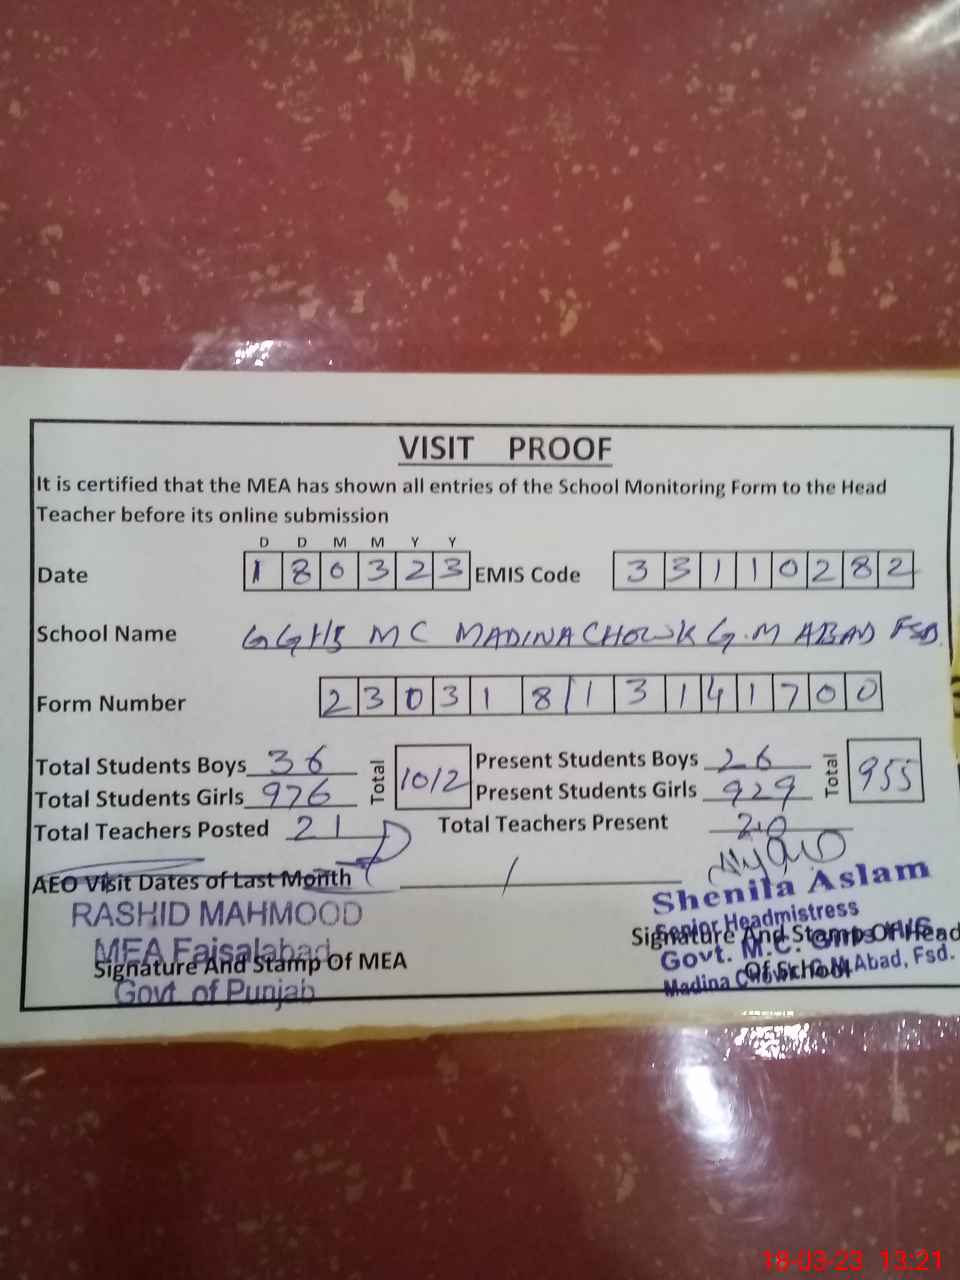 VISIT PROOF
It is certified that the MEA has shown all entries of the School Monitoring Form to the Head
Teacher before its online submission
D D M M Y Y
Date 1 8 0 3 2 3 EMIS Code 3 3 1 1 0 2 8 2
School Name GGHS MC MADINA CHOWK G.M ABAD FSD.
Form Number 2 3 0 3 1 8 1 3 1 4 1 7 0 0
Total Students Boys 36 Total 1012 Present Students Boys 26 Total 955
Total Students Girls 976 Present Students Girls 929
Total Teachers Posted 21 Total Teachers Present 20
AEO Visit Dates of Last Month /
RASHID MAHMOOD
MEA Faisalabad
Signature And Stamp Of MEA
Govt. of Punjab
Shenila Aslam
Senior Headmistress
Signature And Stamp Of Head
Govt. M.C. Girls
Of School
Madina Chowk G.M Abad, Fsd.
18-03-23 13:21